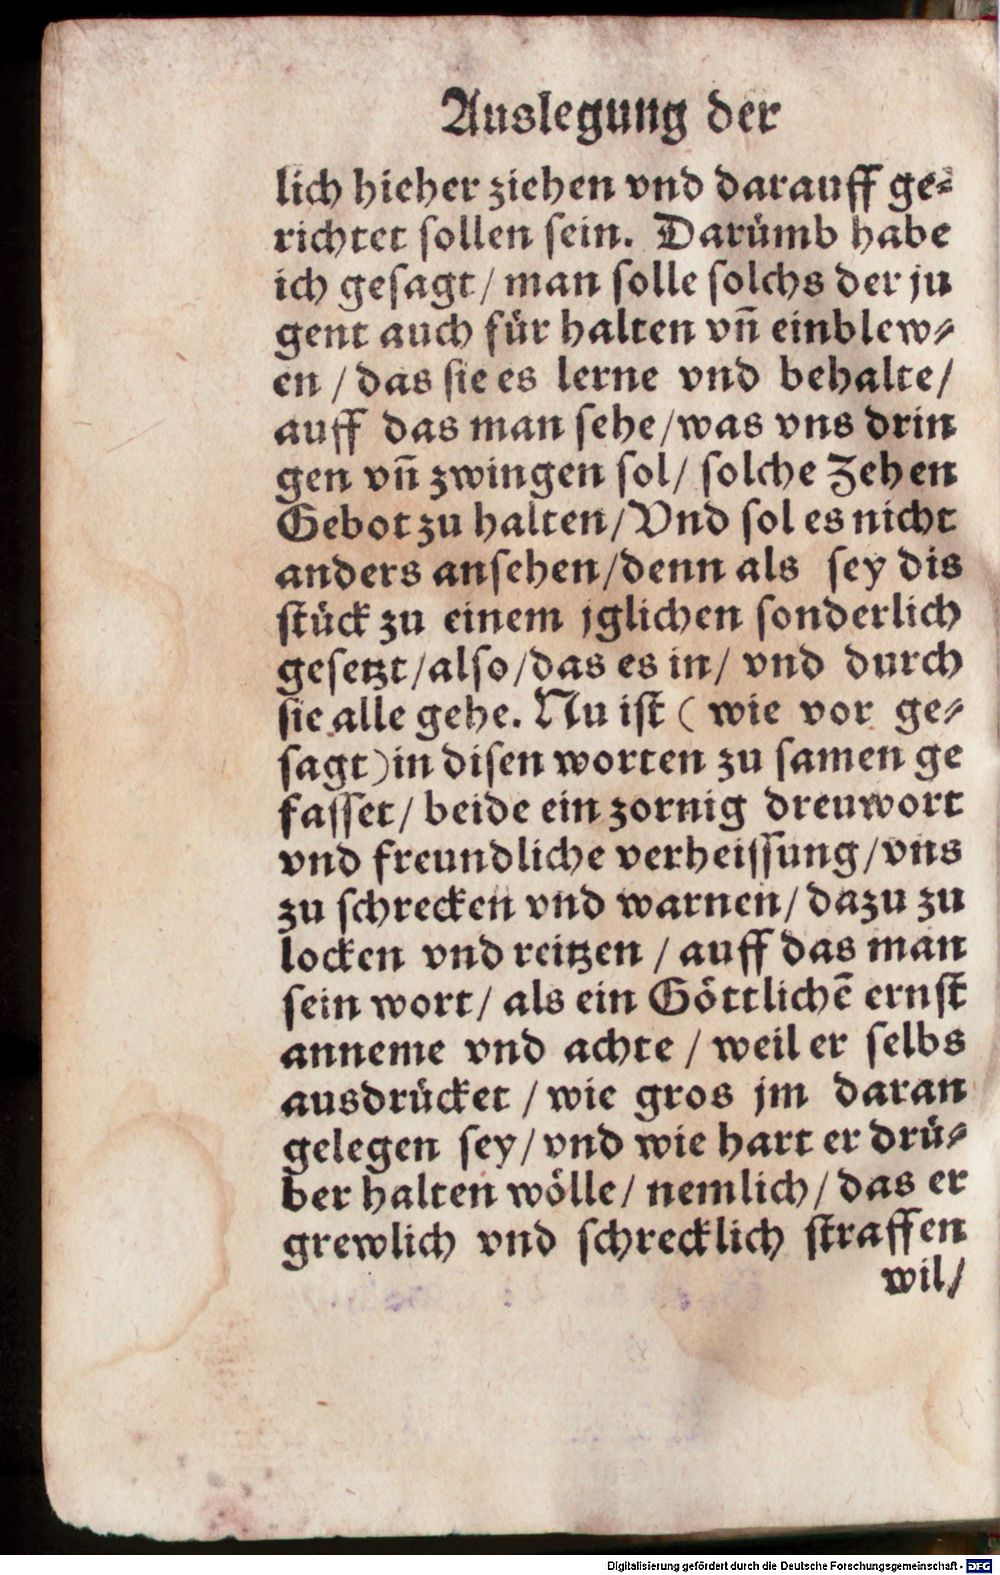 Auslegung der
lich hieher ziehen vnd darauff ge⸗
richtet sollen sein. Darümb habe
ich gesagt/ man solle solchs der ju
gent auch für halten vn̄ einblew⸗
en / das sie es lerne vnd behalte/
auff das man sehe/was vns drin
gen vn̄ zwingen sol/ solche Zehen
Gebot zu halten/Vnd sol es nicht
anders ansehen/denn als sey dis
stück zu einem jglichen sonderlich
gesetzt/also/das es in/ vnd durch
sie alle gehe. Nu ist ( wie vor ge⸗
sagt)in disen worten zu samen ge
fasset/ beide ein zornig dreuwort
vnd freundliche verheissung/vns
zu schrecken vnd warnen/ dazu zu
locken vnd reitzen / auff das man
sein wort/ als ein Göttlichē ernst
anneme vnd achte / weil er selbs
ausdrücket / wie gros jm daran
gelegen sey/ vnd wie hart er drü⸗
ber halten wölle/ nemlich/ das er
grewlich vnd schrecklich straffen
wil/
Digitalisierung gefördert durch die Deutsche Forschungsgemeinschaft - DFG